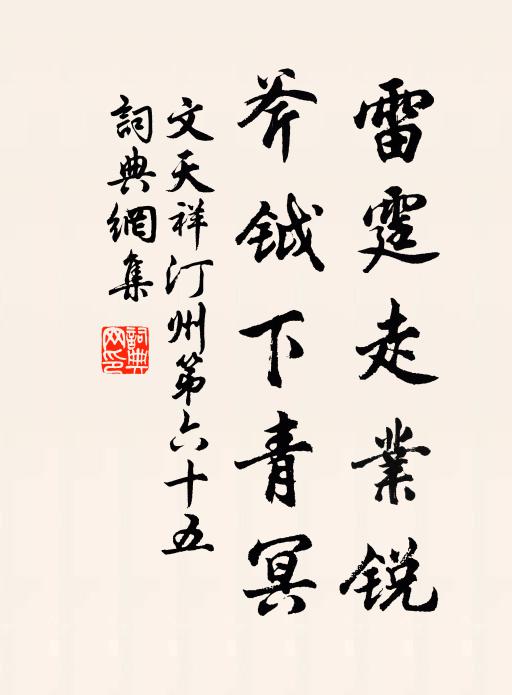 雷霆走業鋭
斧鉞下青冥
文天祥汀州第六十五
詞典網集
詞典
网印